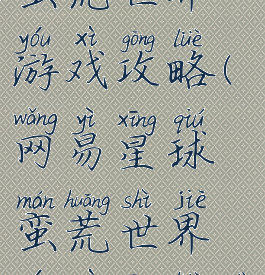 yóu xì gōng lüè
游戏攻略(
wǎng yì xīng qiú
网易星球
mán huāng shì jiè
蛮荒世界